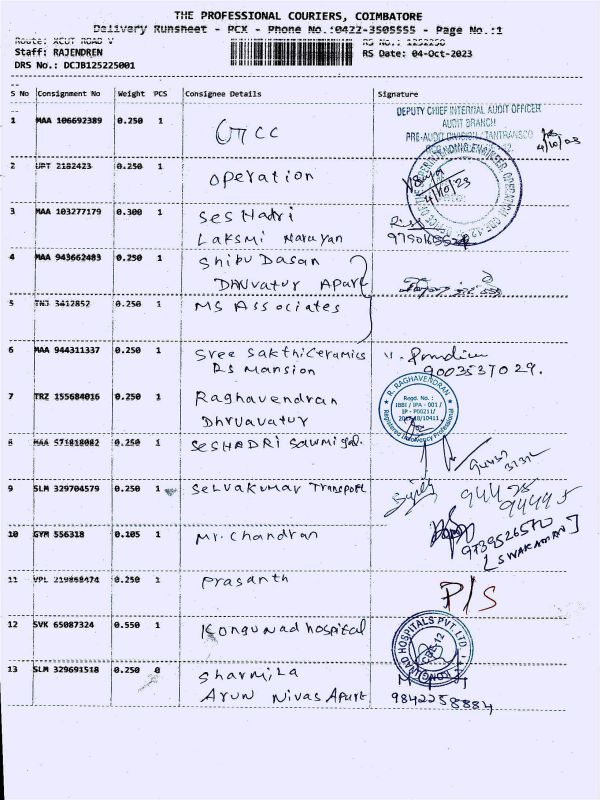 THE PROFESSIONAL COURIERS, COIMBATORE
Delivery Runsheet - PCX - Phone No.:0422-3505555 - Page No.:1
Route: XCUT ROAD V
RS No.: 1252250
Staff: RAJENDREN
RS Date: 04-Oct-2023
DRS No.: DCJB125225001
S No Consignment No Weight PCS Consignee Details Signature
1 MAA 106692389 0.250 1 GTCC
DEPUTY CHIEF INTERNAL AUDIT OFFICER
AUDIT BRANCH
PRE-AUDIT DIVISION / TANTRANSCO
4/10/23
2 UPT 2182423 0.250 1 operation
4/10/23
3 MAA 103277179 0.300 1 Ses Hadri
Laksmi Narayan
4 MAA 943662483 0.250 1 Shibu Dasan
Dhruvatur Apart
5 TNJ 3412852 0.250 1 MS Associates
6 MAA 944311337 0.250 1 Sree SakthiCeramics
RS Mansion
9003537029.
7 TRZ 155684016 0.250 1 Raghavendran
Dhruvatur
R. RAGHAVENDRAN
Regd. No. :
IBBI / IPA - 001 /
IP - P00211/
Registered Insolvency Professional
8 MAA 571818082 0.250 1 SESHADRI
9 SLM 329704579 0.250 1 Selvakumar Transport
10 GYM 556318 0.105 1 Mr. Chandran
9789526570
11 VPL 219868474 0.250 1 Prasanth
P/S
12 SVK 65087324 0.550 1 Kongunad hospital
KONGUNAD HOSPITALS PVT. LTD.
CBE-12
13 SLM 329691518 0.250 0 Sharmila
Arun Nivas Apart
9842258884